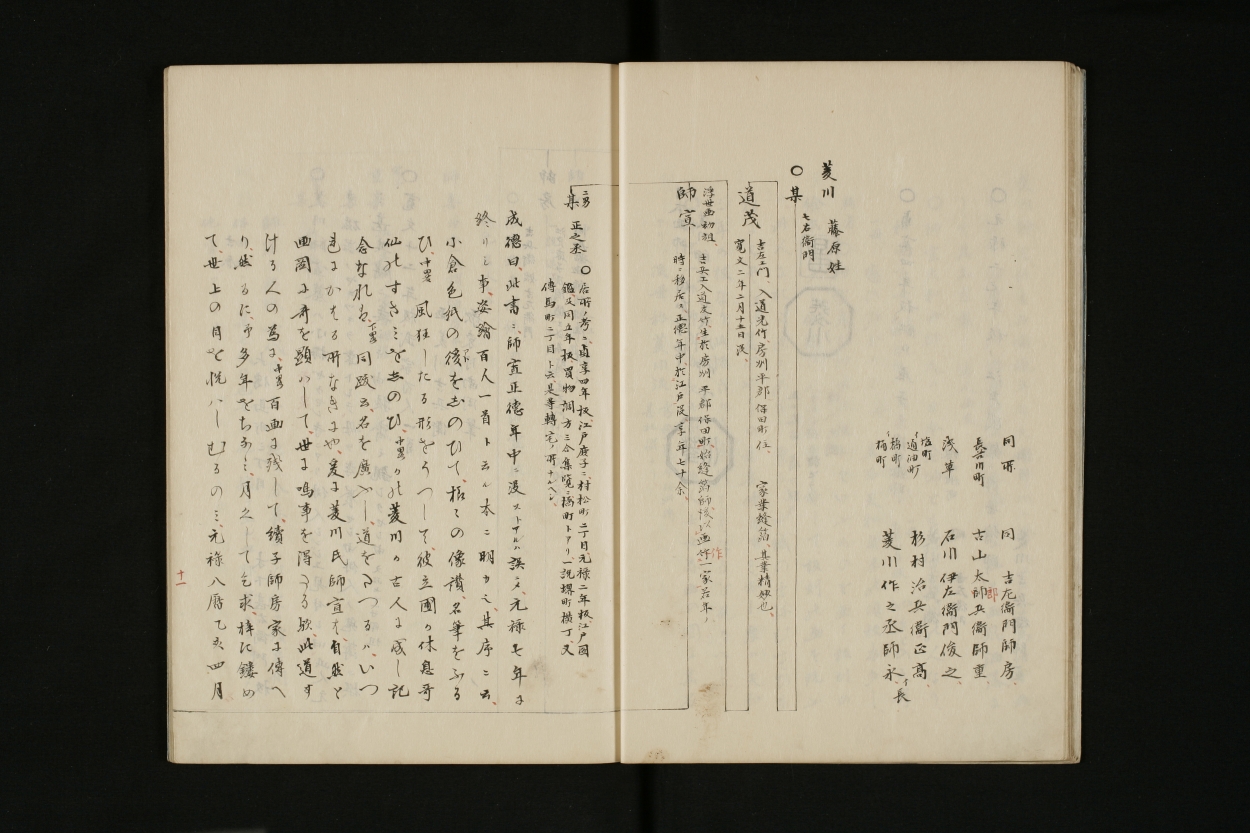 同所 同 吉左衞門師房
長谷川町 古山太郎兵衞師重
浅草 石川伊左衞門俊之
通油町 杉村治兵衞正高
橘町 菱川作之丞師永
長
菱川 藤原姓
〇某 七右衞門
道茂 吉左ヱ門、入道光竹、房州平郡保田町住、家業縫箔、其業精妙也、
寛文二年二月十五日没、
浮世画初祖、吉兵ヱ入道友竹、生於房州平郡保田町、始縫箔師後以画作一家、若年ノ
師宣 時ニ移居ニ正德年中、於江戸没、享年七十余、
二男
某 正之丞
〇居所ノ考ニ、貞享四年板江戸鹿子ニ村松町二丁目元禄二年板江戸図
鑑又同五年板買物調方三合集覧ニ橘町トアリ、一説堺町横丁、又
傳馬町二丁目ト云、是等轉宅ノ所ナルヘシ、
成德曰、此書ニ師宣正德年中ニ没ストアルハ誤ニテ、元禄七年に
終りし事、姿繪百人一首ト云ル本ニ明カ也、其序ニ云、
小倉色紙の後をしのひて、様々の像讃、名筆をふる
ひ、中畧 風狂したる形をうつして、彼立圃か休息哥
仙せすきミをしのひ、中畧 菱川か古人に成し記
念なれは、下畧 同跋云、名を廣ふし、道をつつるハ、いつ
色にかたる所なきにや、爰に菱川氏師宣は、自然と
画図に奇を顕ハして、世に鳴事を得たる歟、此道す
ける人の為に、中畧 百画に残して、續子師房家に傳へ
り、然るに、予多年せちに月之して乞求、梓に鏤め
て、世上の目を悦ハしむるのミ、元禄八暦乙亥、四月
十一